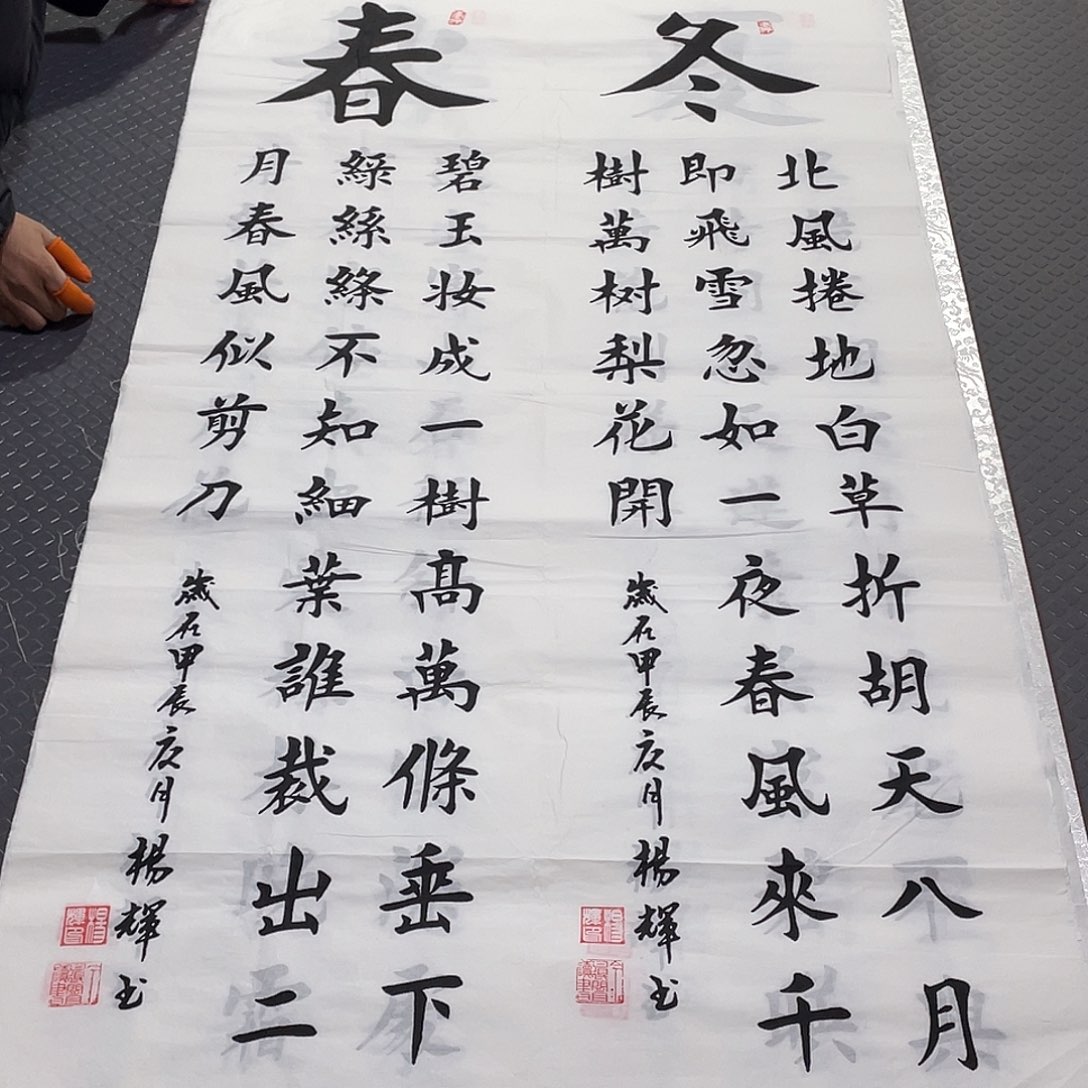 冬
北風捲地白草折胡天八月
即飛雪忽如一夜春風來千
樹萬树梨花開
歲在甲辰亥月楊輝书
春
碧玉妆成一樹髙萬條垂下
綠絲絛不知細葉誰裁出二
月春風似剪刀
歲在甲辰亥月楊輝书